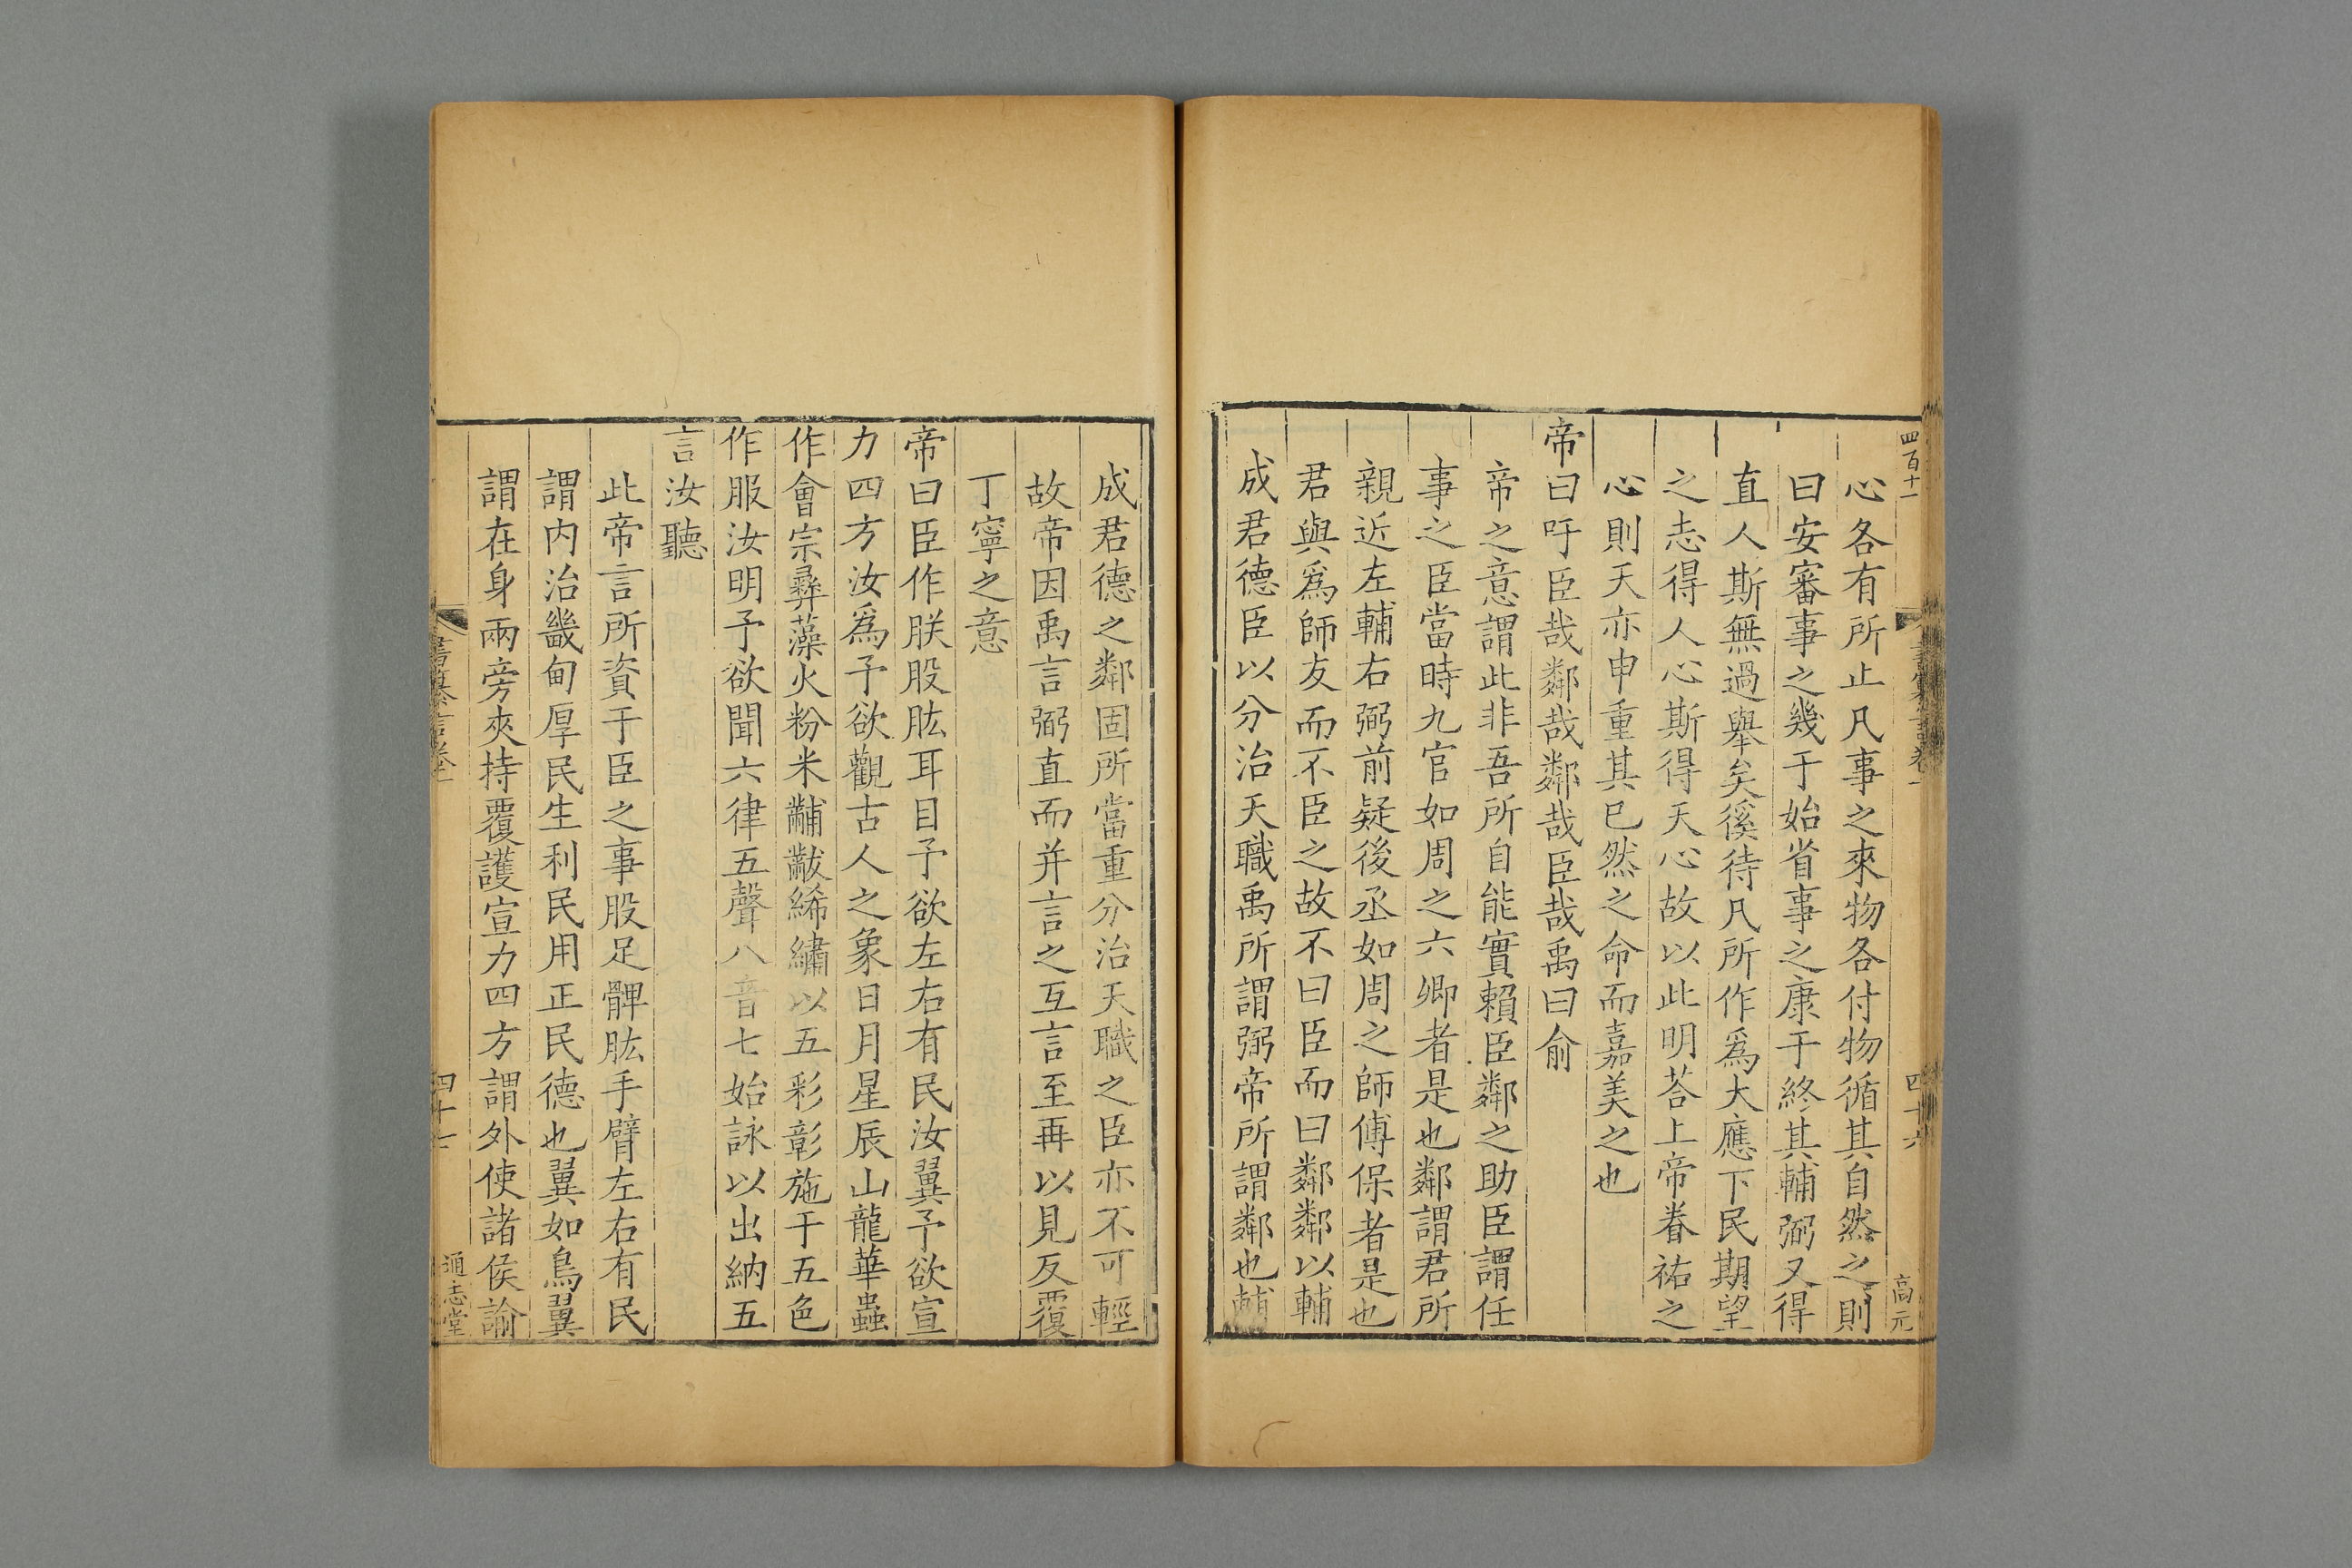 四百十一
四十六
高元
心各有所止凡事之來物各付物循其自然之則
曰安審事之幾于始省事之康于終其輔弼又得
直人斯無過舉矣徯待凡所作爲大應下民期望
之志得人心斯得天心故以此明荅上帝眷祐之
心則天亦申重其已然之命而嘉美之也
帝曰吁臣哉鄰哉鄰哉臣哉禹曰俞
帝之意謂此非吾所自能實賴臣鄰之助臣謂任
事之臣當時九官如周之六卿者是也鄰謂君所
親近左輔右弼前疑後丞如周之師傅保者是也
君與爲師友而不臣之故不曰臣而曰鄰鄰以輔
成君德臣以分治天職禹所謂弼帝所謂鄰也輔
成君德之鄰固所當重分治天職之臣亦不可輕
故帝因禹言弼直而并言之互言至再以見反覆
丁寧之意
帝曰臣作朕股肱耳目予欲左右有民汝翼予欲宣
力四方汝爲予欲觀古人之象日月星辰山龍華蟲
作會宗彝藻火粉米黼黻絺繡以五彩彰施于五色
作服汝明予欲聞六律五聲八音七始詠以出納五
言汝聽
此帝言所資于臣之事股足髀肱手臂左右有民
謂内治畿甸厚民生利民用正民德也翼如鳥翼
謂在身兩旁夾持覆護宣力四方謂外使諸侯諭
書纂言卷一
四十七
通志堂